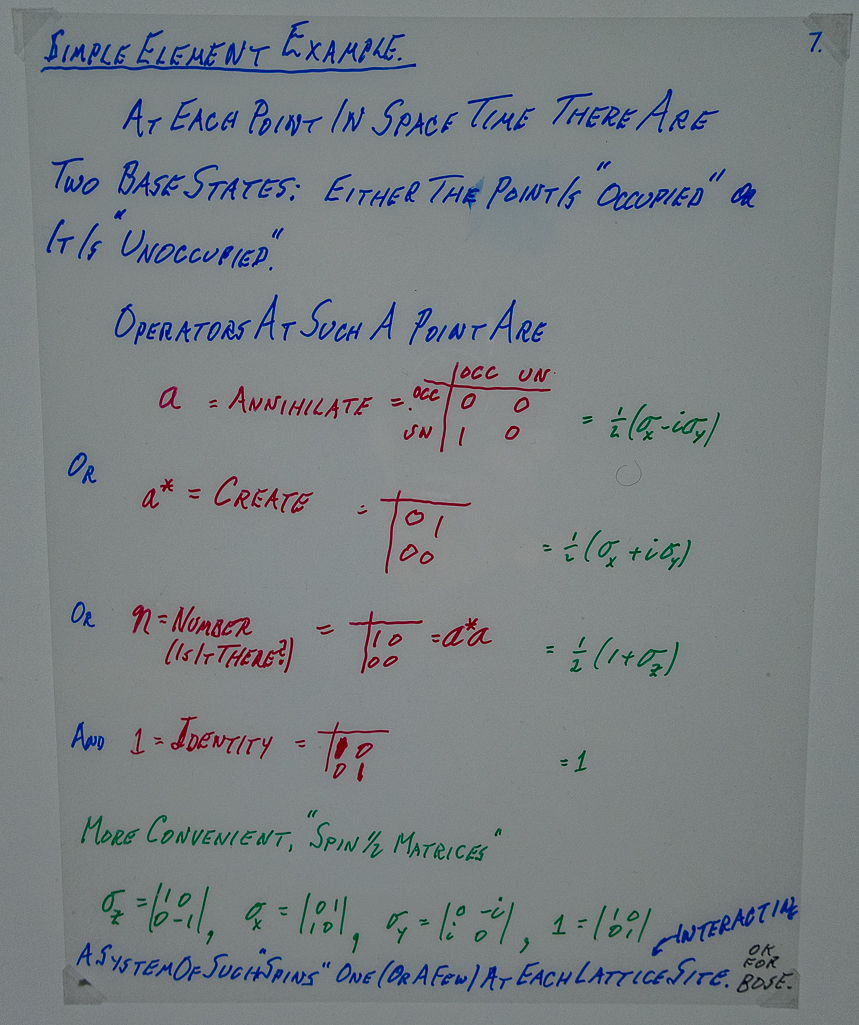 SIMPLE ELEMENT EXAMPLE.
7.
AT EACH POINT IN SPACE TIME THERE ARE
TWO BASE STATES: EITHER THE POINT IS "OCCUPIED" OR
IT IS "UNOCCUPIED."
OPERATORS AT SUCH A POINT ARE
OCC UN.
a = ANNIHILATE = OCC 0 0 = ½(σx-iσy)
UN 1 0
OR
a* = CREATE = 0 1 = ½(σx+iσy)
0 0
OR n = NUMBER = 1 0 = a*a = ½(1+σz)
(IS IT THERE?) 0 0
AND 1 = IDENTITY = 1 0 = 1
0 1
MORE CONVENIENT, "SPIN ½ MATRICES"
σz = |1 0|, σx = |0 1|, σy = |0 -i|, 1 = |1 0|
|0 -1| |1 0| |i 0| |0 1|
INTERACTING
A SYSTEM OF SUCH "SPINS" ONE (OR A FEW) AT EACH LATTICE SITE.
OK
FOR
BOSE.